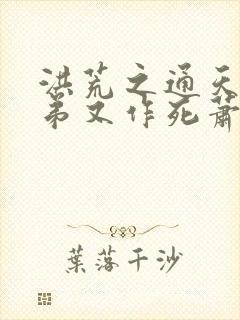 洪荒之通天
弟又作死萧
葉落千沙